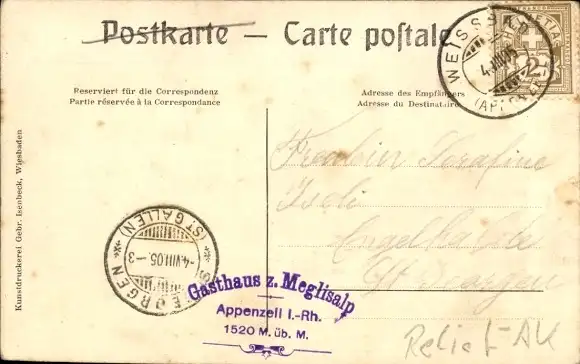 Postkarte — Carte postale
Reserviert für die Correspondenz
Partie réservée à la Correspondance
Adresse des Empfängers
Adresse du Destinataire
WEISSBAD
4.VIII.05
(APPENZELL)
HELVETIA
2
Kunstdruckerei Gebr. Isenbeck, Wiesbaden
Fräulein Serafine
St. Georgen
ST. GEORGEN
(ST. GALLEN)
-4.VIII.05-3
Gasthaus z. Meglisalp
Appenzell I.-Rh.
1520 M. üb. M.
Relief-AK